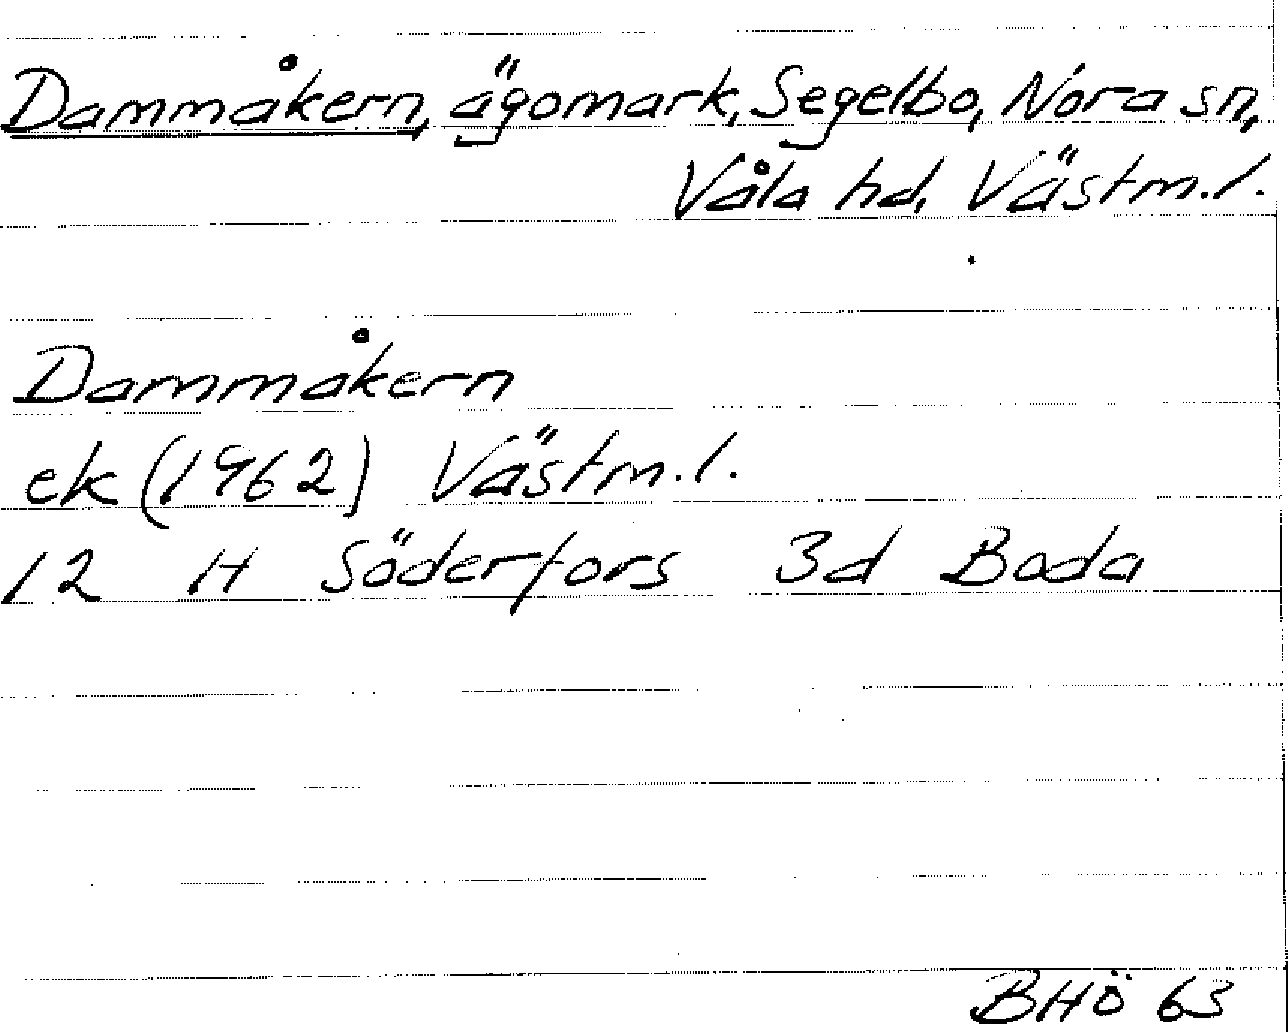 Dammåkern, ägomark, Segelbo, Nora sn,
Våla hd, Västm.l.
Dammåkern
ek (1962) Västm.l.
12 H Söderfors 3d Boda
BHÖ 63